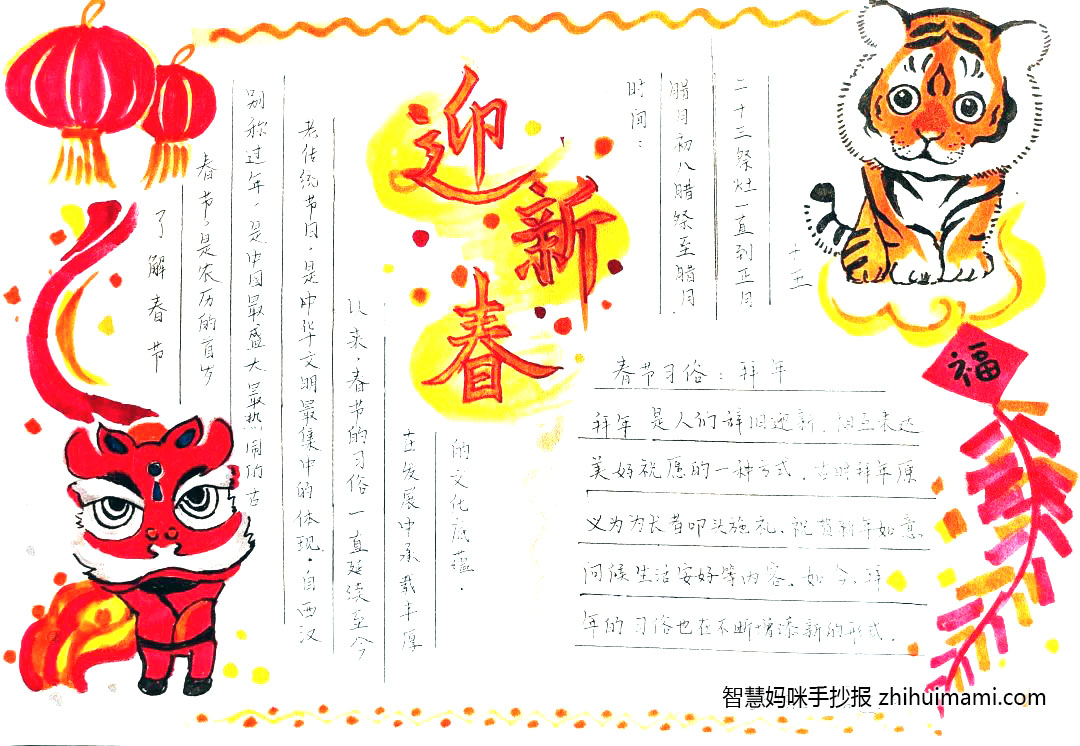 迎新春
了解春节
春节,是农历的首岁
别称过年,是中国最盛大最热闹的古
老传统节日,是中华文明最集中的体现.自西汉
以来,春节的习俗一直延续至今
在发展中承载丰厚
的文化底蕴.
时间:
腊月初八腊祭至腊月
二十三祭灶一直到正月
十五
福
春节习俗:拜年
拜年是人们辞旧迎新、相互表达
美好祝愿的一种方式.古时拜年原
义为为长者叩头施礼、祝贺新年如意、
问候生活安好等内容.如今,拜
年的习俗也在不断增添新的形式.
智慧妈咪手抄报 zhihuimami.com